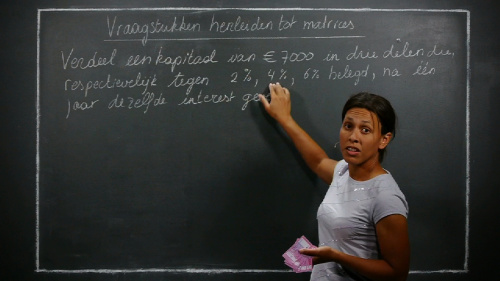 Vraagstukken herleiden tot matrices
Verdeel een kapitaal van € 7000 in drie delen die,
respectievelijk tegen 2%, 4%, 6% belegd, na één
jaar dezelfde interest